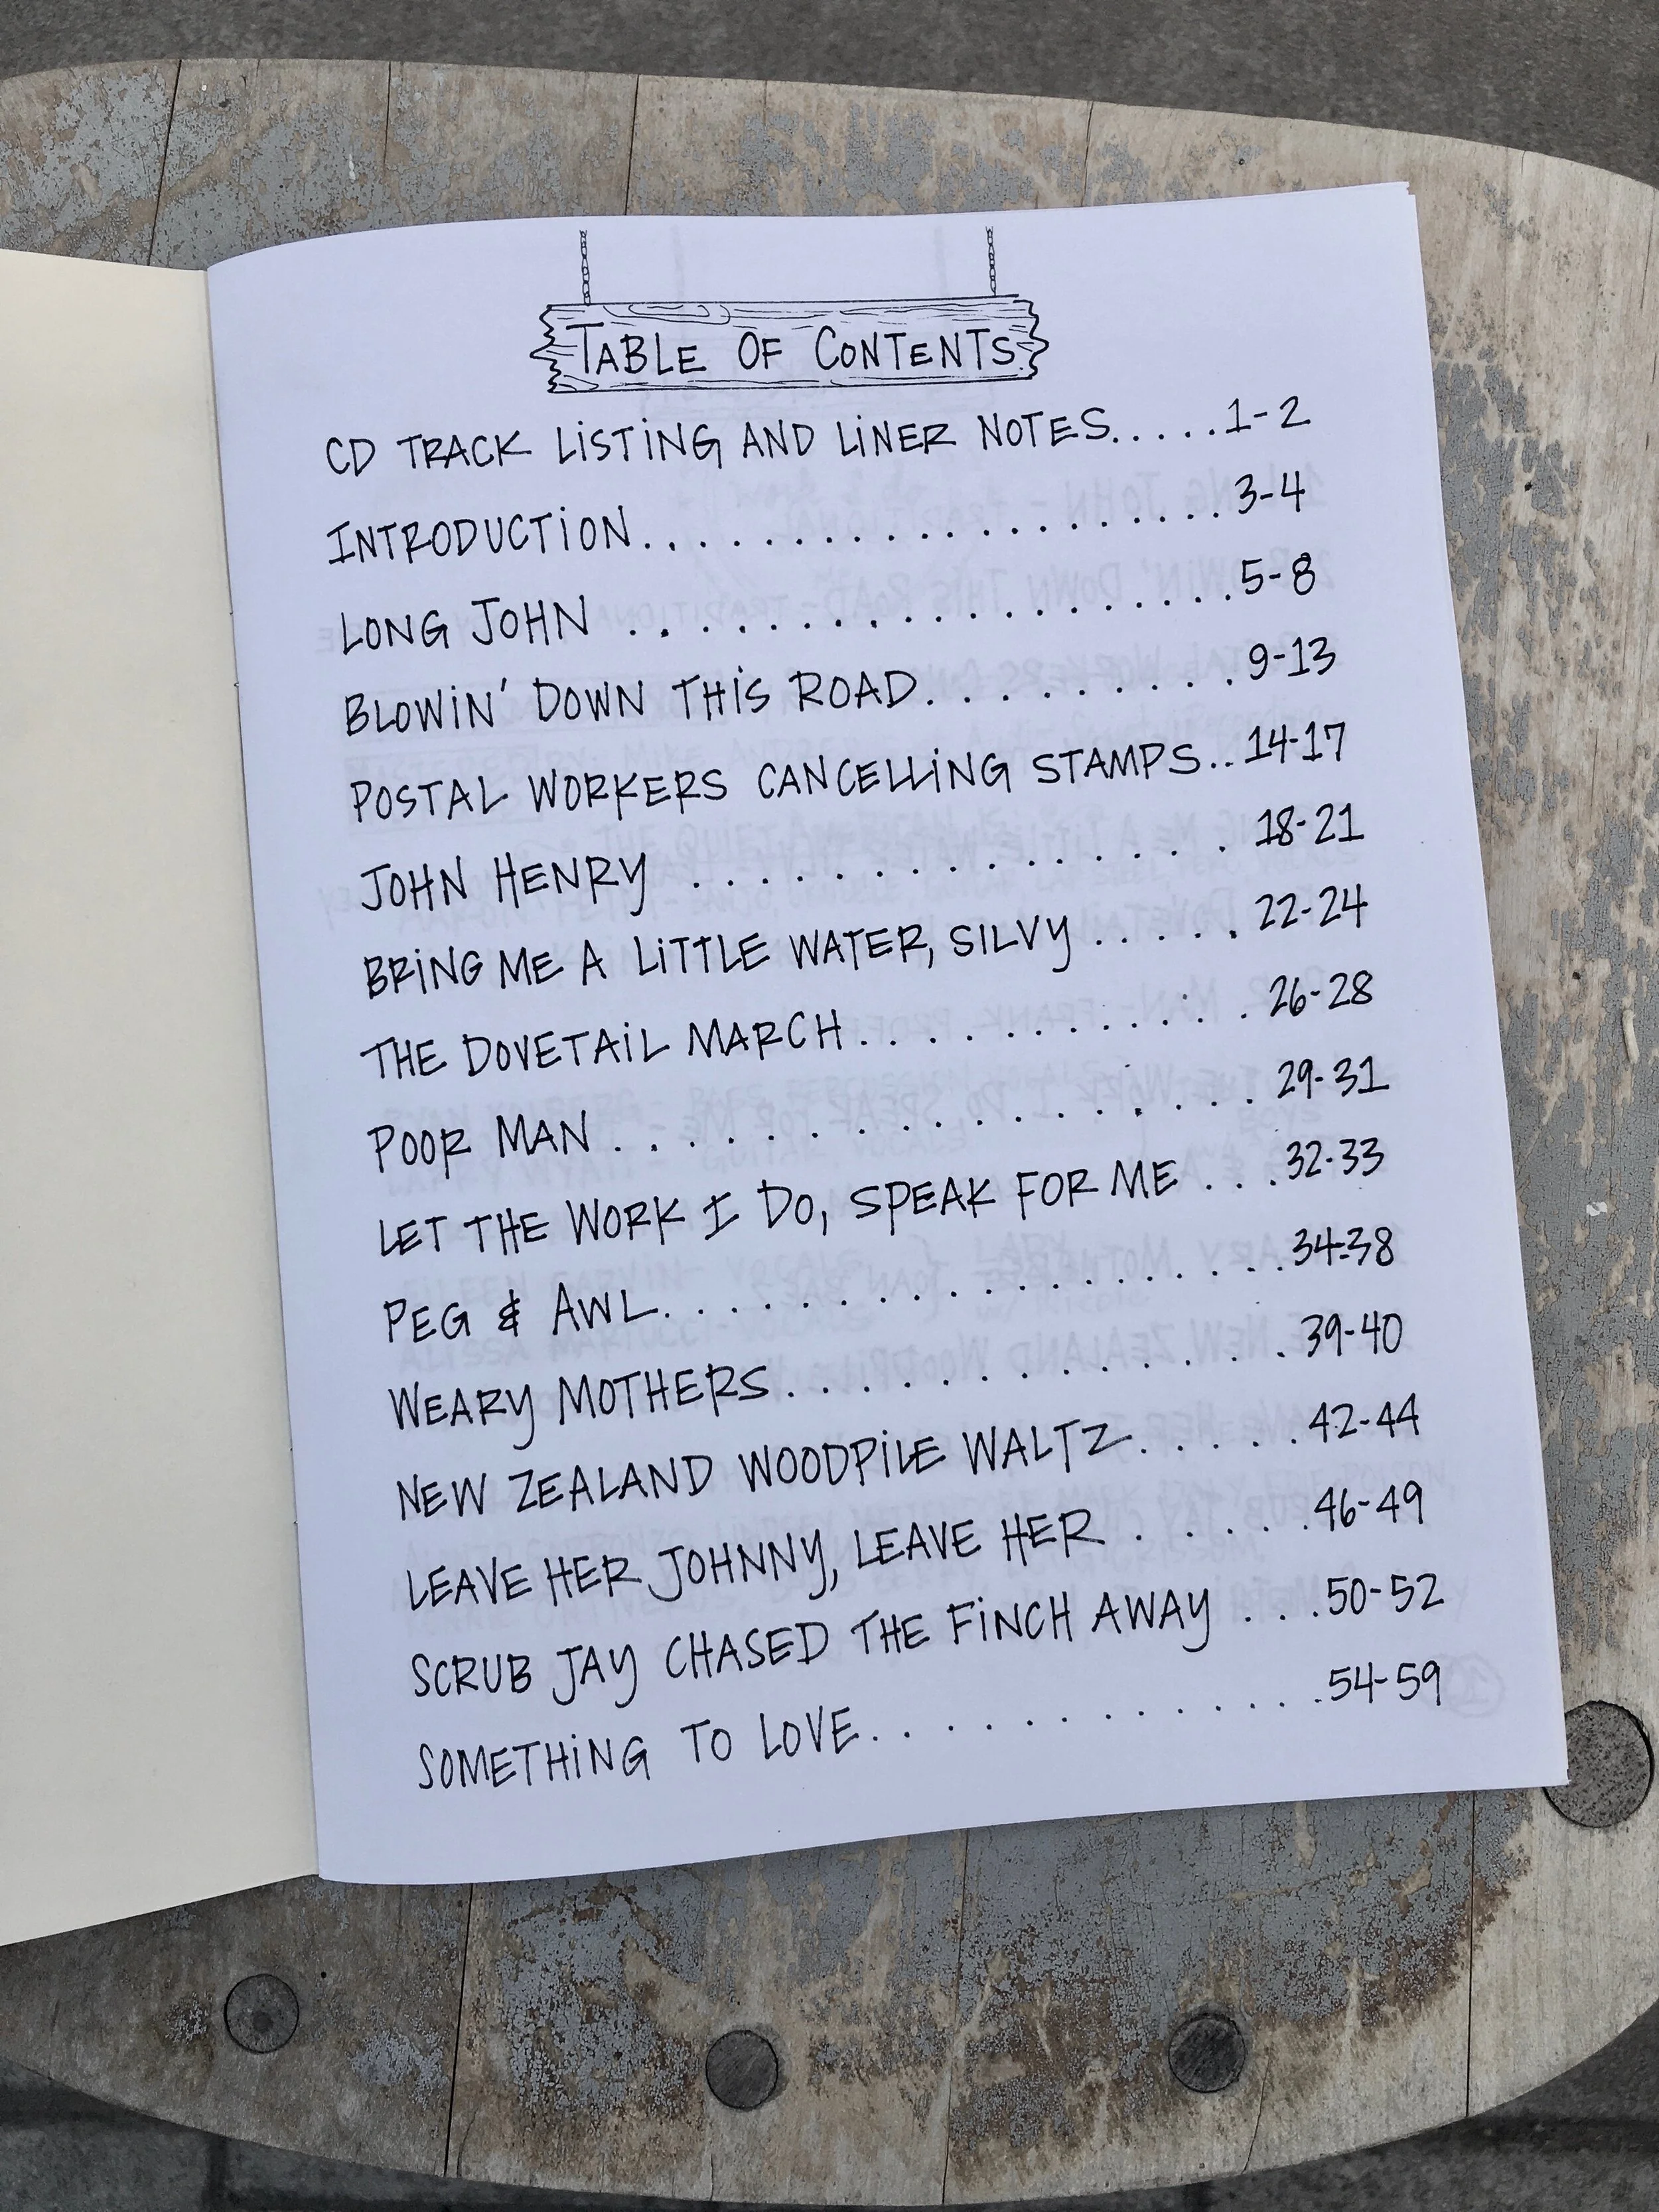 TABLE OF CONTENTS
CD TRACK LISTING AND LINER NOTES.....1-2
INTRODUCTION...................3-4
LONG JOHN ..................5-8
BLOWIN' DOWN THIS ROAD.........9-13
POSTAL WORKERS CANCELLING STAMPS..14-17
JOHN HENRY ..............18-21
BRING ME A LITTLE WATER, SILVY......22-24
THE DOVETAIL MARCH..........26-28
POOR MAN ................29-31
LET THE WORK I DO, SPEAK FOR ME ...32-33
PEG & AWL................34-38
WEARY MOTHERS.............39-40
NEW ZEALAND WOODPILE WALTZ.....42-44
LEAVE HER JOHNNY, LEAVE HER .....46-49
SCRUB JAY CHASED THE FINCH AWAY ...50-52
SOMETHING TO LOVE............54-59